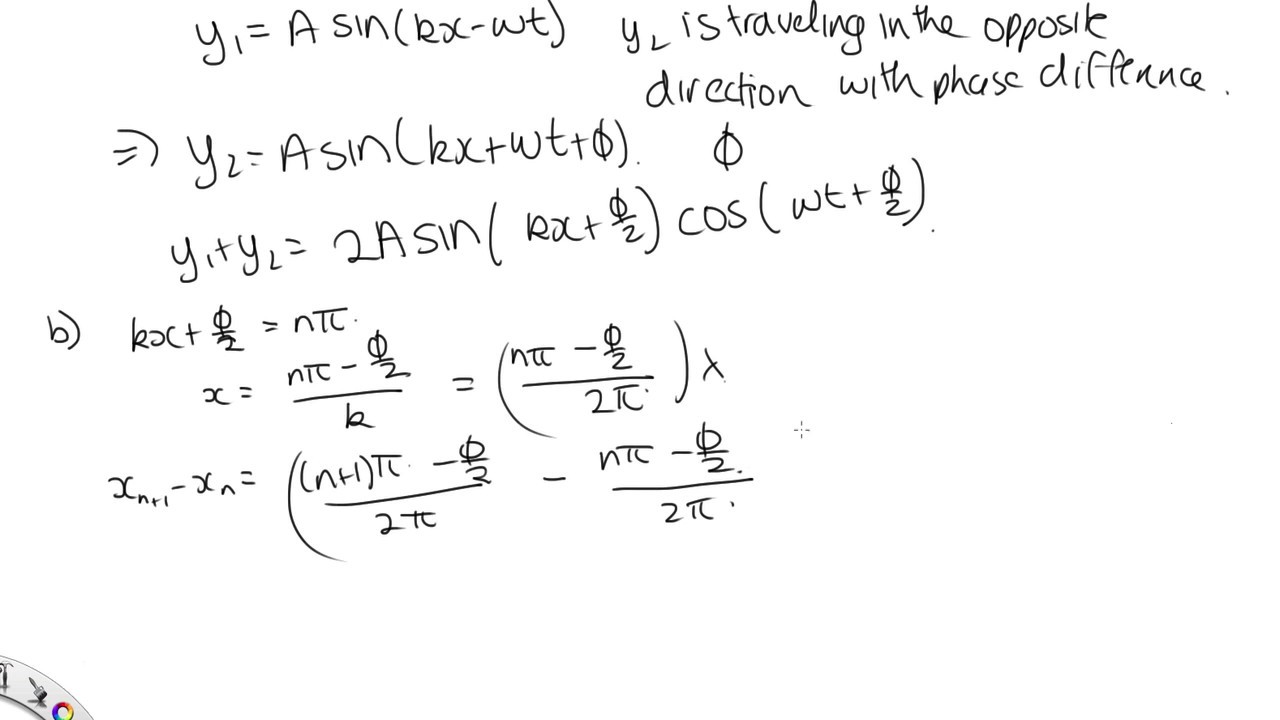 y₁ = A sin(kx - wt)   y₂ is traveling in the opposite
direction with phase difference.
⇒ y₂ = A sin(kx + wt + ϕ).   ϕ
y₁ + y₂ = 2A sin(kx + ϕ/2) cos(wt + ϕ/2).
b) kx + ϕ/2 = nπ.
x = (nπ - ϕ/2)/k = ((nπ - ϕ/2)/2π.)λ
xₙ₊₁ - xₙ = (((n+1)π. - ϕ/2)/2π - (nπ - ϕ/2.)/2π.